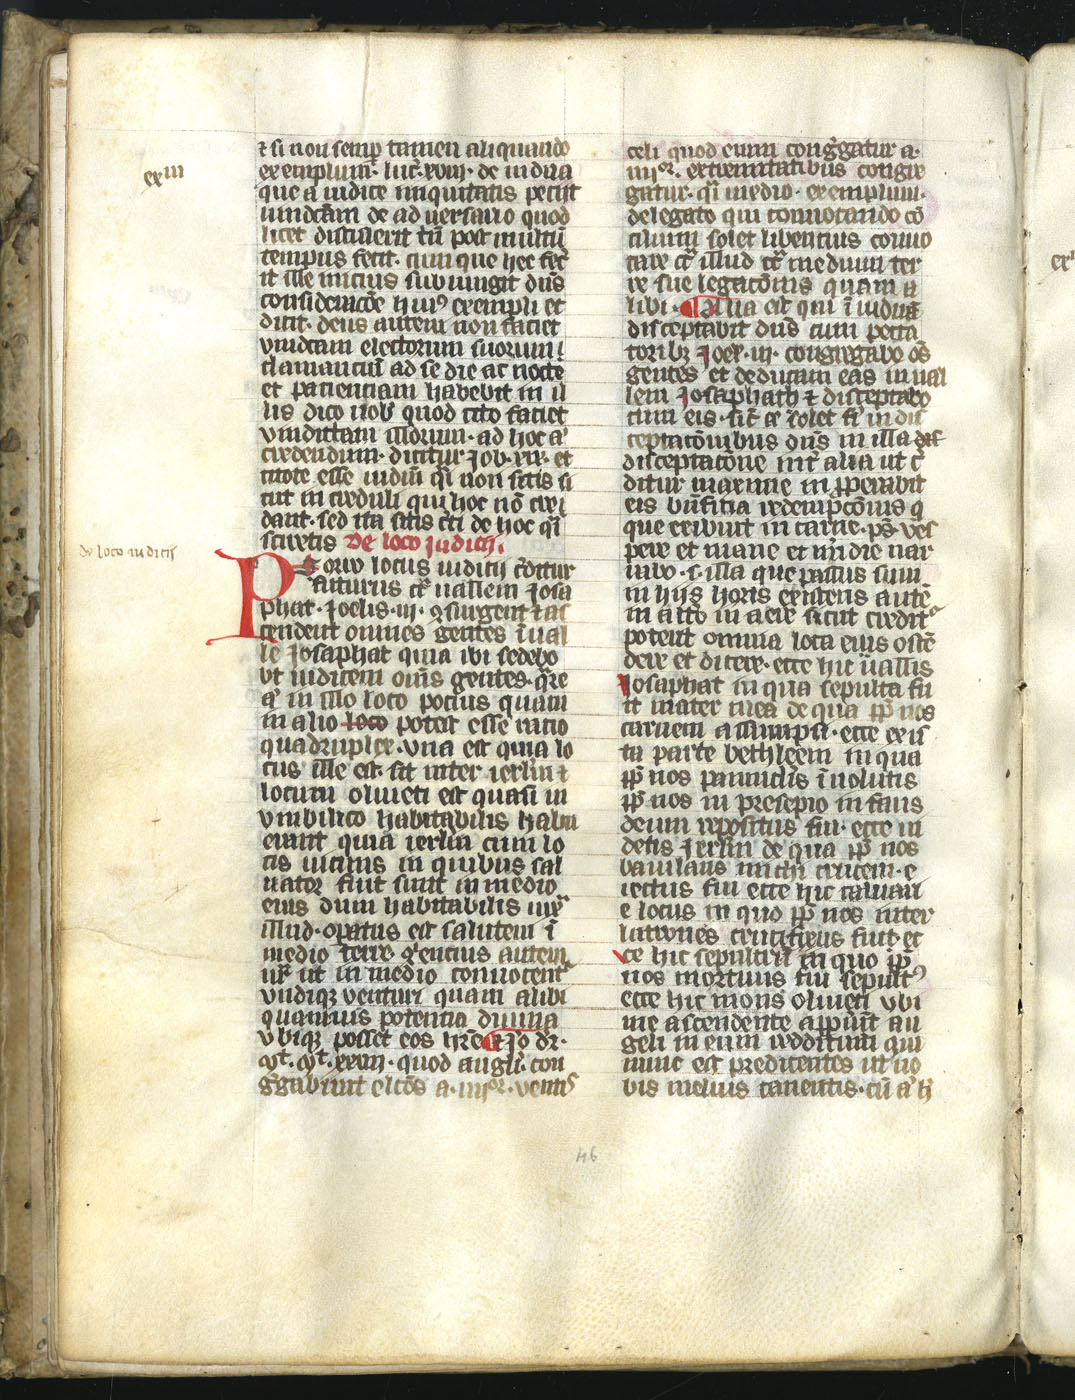 ⁊ si non semꝑ tamen aliquando
exemplum· luc̄·xviii· de uidua
que a iudice iniquitatis petiit
uindc̄am de aduersario quod
licet distulerit tn̄ post multū
tempus fecit· cumque hec fec̄
it ille inicius subiungit dn̄s
consideracōe huiꝰ exempli et
dicit· deus autem non faciet
vindcam electorum suorum
clamanciū ad se die ac nocte
et pacientiam habebit in il
lis dico uob̄ quod cito faciet
vindictam illorum· ad hoc
credendum· dicitur Job·xix· et
citote esse iudiciū q̄ non setis si
cut in creduli qui hoc nō cre
dant· sed ita sitis c̄ti de hoc q̄
sciretis De loco Judicij·
Porro locus iudicij c̄ditur
futurus cr̄ uallem Josa
phat· Joelis·iii· ꝯsurgent ⁊ as
cendent omnes gentes ī ual
le Josaphat quia ibi sedebo
vt iudicem om̄s gentes· q̄re
in illo loco pocius quam
in alio loco potest esse racio
quadruplex· vna est quia lo
cus ille est· sit inter ierlm̄ ⁊
locum oliueti est quasi in
vmbilico habitabilis habu
erant quia ierlm̄ cum lo
cis uicinis in quibus sal
uator fuit sunt in medio
eius dum habitabilis iux̄
illud· opatus est salutem ī
medio terre gencius autem
ut in medio conuocent̄
vndiqꝫ venturi quam alibi
quamuis potencia diuina
vbiqꝫ posset eos
xxiiii· quod angli· con
g̃gabunt elc̄os a·iiiiᵒʳ·ventis
celi quod eum cong̃gatur a·
iiiiᵒʳ· extremitatibus congre
gatur· q̄ medio· exemplum·
delegato qui conuocando cō
cilium solet libencius conuo
care cr̄ illud cr̄ medium ter
re sue legacōnis quam a
libi· Alia est qui ī iudicā
disceptabit dn̄s cum pecca
toribꝫ Joel·iii· congregabo oēs
gentes et deducam eas in ual
lem Josaphath ⁊ disceptabo
cum eis· sic̄ solet in dis
ceptacōnibus om̄s in illa
disceptacōne int̄ alia ut
ditur maxime inꝓperabit
eis bn̄ficia redempcōnis q
que exibuit in carne· ps̄ ves
pere et mane et m̄idie nar
rabo· ⁊· illa que passus sum
in hijs horis existens autē
in alto in aere sicut credit̄
potent omnia loca eius ostē
dere et dicere· ecce hic uallis
Josaphat in qua sepulta fu
it mater mea de qua ꝓp̄ nos
carnem assumpsi· ecce ex is
ta parte bethleem in qua
ꝓp̄ nos pannicul̄s īuolutis
ꝓp̄ nos in presepio in faus
deum repositus fui· ecce in
detis Jerlm̄ de qua ꝓp̄ nos
baiulans michi crucem· e
iectus fui ecce hic caluari
e locus in quo ꝓp̄ nos inter
latrones crucifixus fui· et
ce hic sepultrū in quo ꝓp̄
nos mortuus fui sepultꝰ
ecce hic mons oliueti vbi
me ascendente apparūt an
geli in eum redditum qui
nunc est predicentes ut uo
bis meluis canentis· cū
exm
de loco iudicij
46